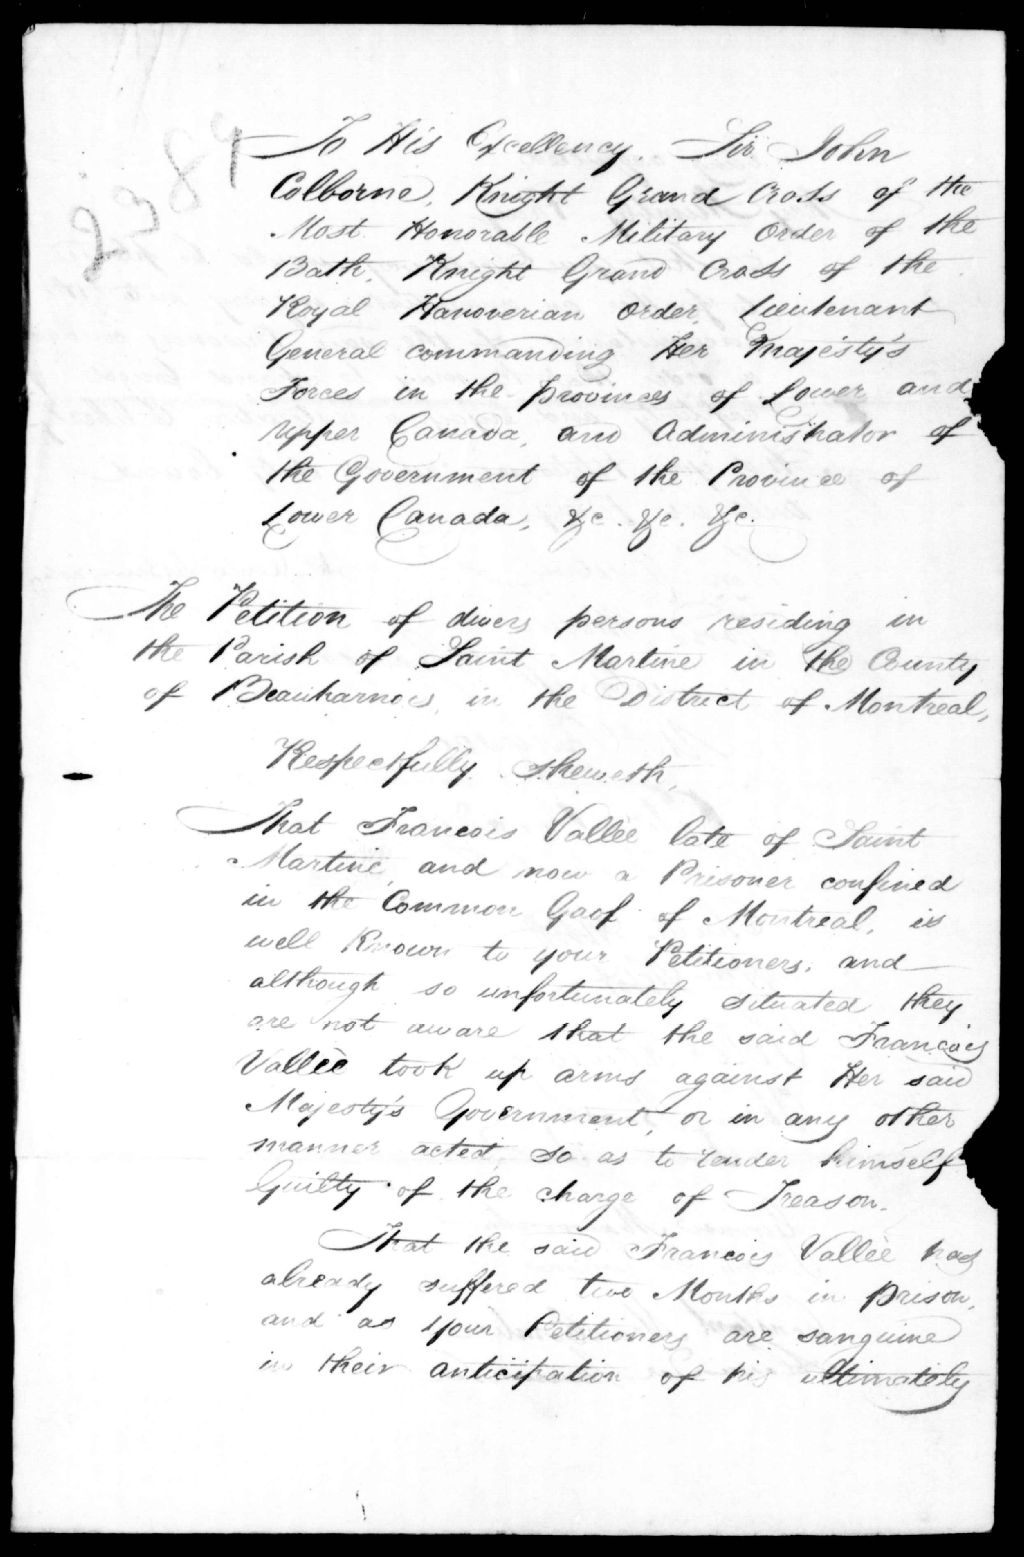 2384
To His Excellency. Sir John
Colborne, Knight Grand Cross of the
Most Honorable Military Order of the
Bath, Knight Grand Cross of the
Royal Hanoverian Order, Lieutenant
General commanding Her Majesty's
Forces in the provinces of Lower and
Upper Canada, and Administrator of
the Government of the Province of
Lower Canada, &c. &c. &c.
The Petition of divers persons residing in
the Parish of Saint Martine in the County
of Beauharnois, in the District of Montreal,
Respectfully sheweth,
That Francois Vallée late of Saint
Martine, and now a Prisoner confined
in the Common Gaol of Montreal, is
well known to your Petitioners, and
although so unfortunately situated they
are not aware that the said François
Vallée took up arms against Her said
Majesty's Government, or in any other
manner acted so as to render himself
Guilty of the charge of Treason.
That the said Francois Vallée has
already suffered two Months in prison,
and as your Petitioners are sanguine
in their anticipation of his ultimately